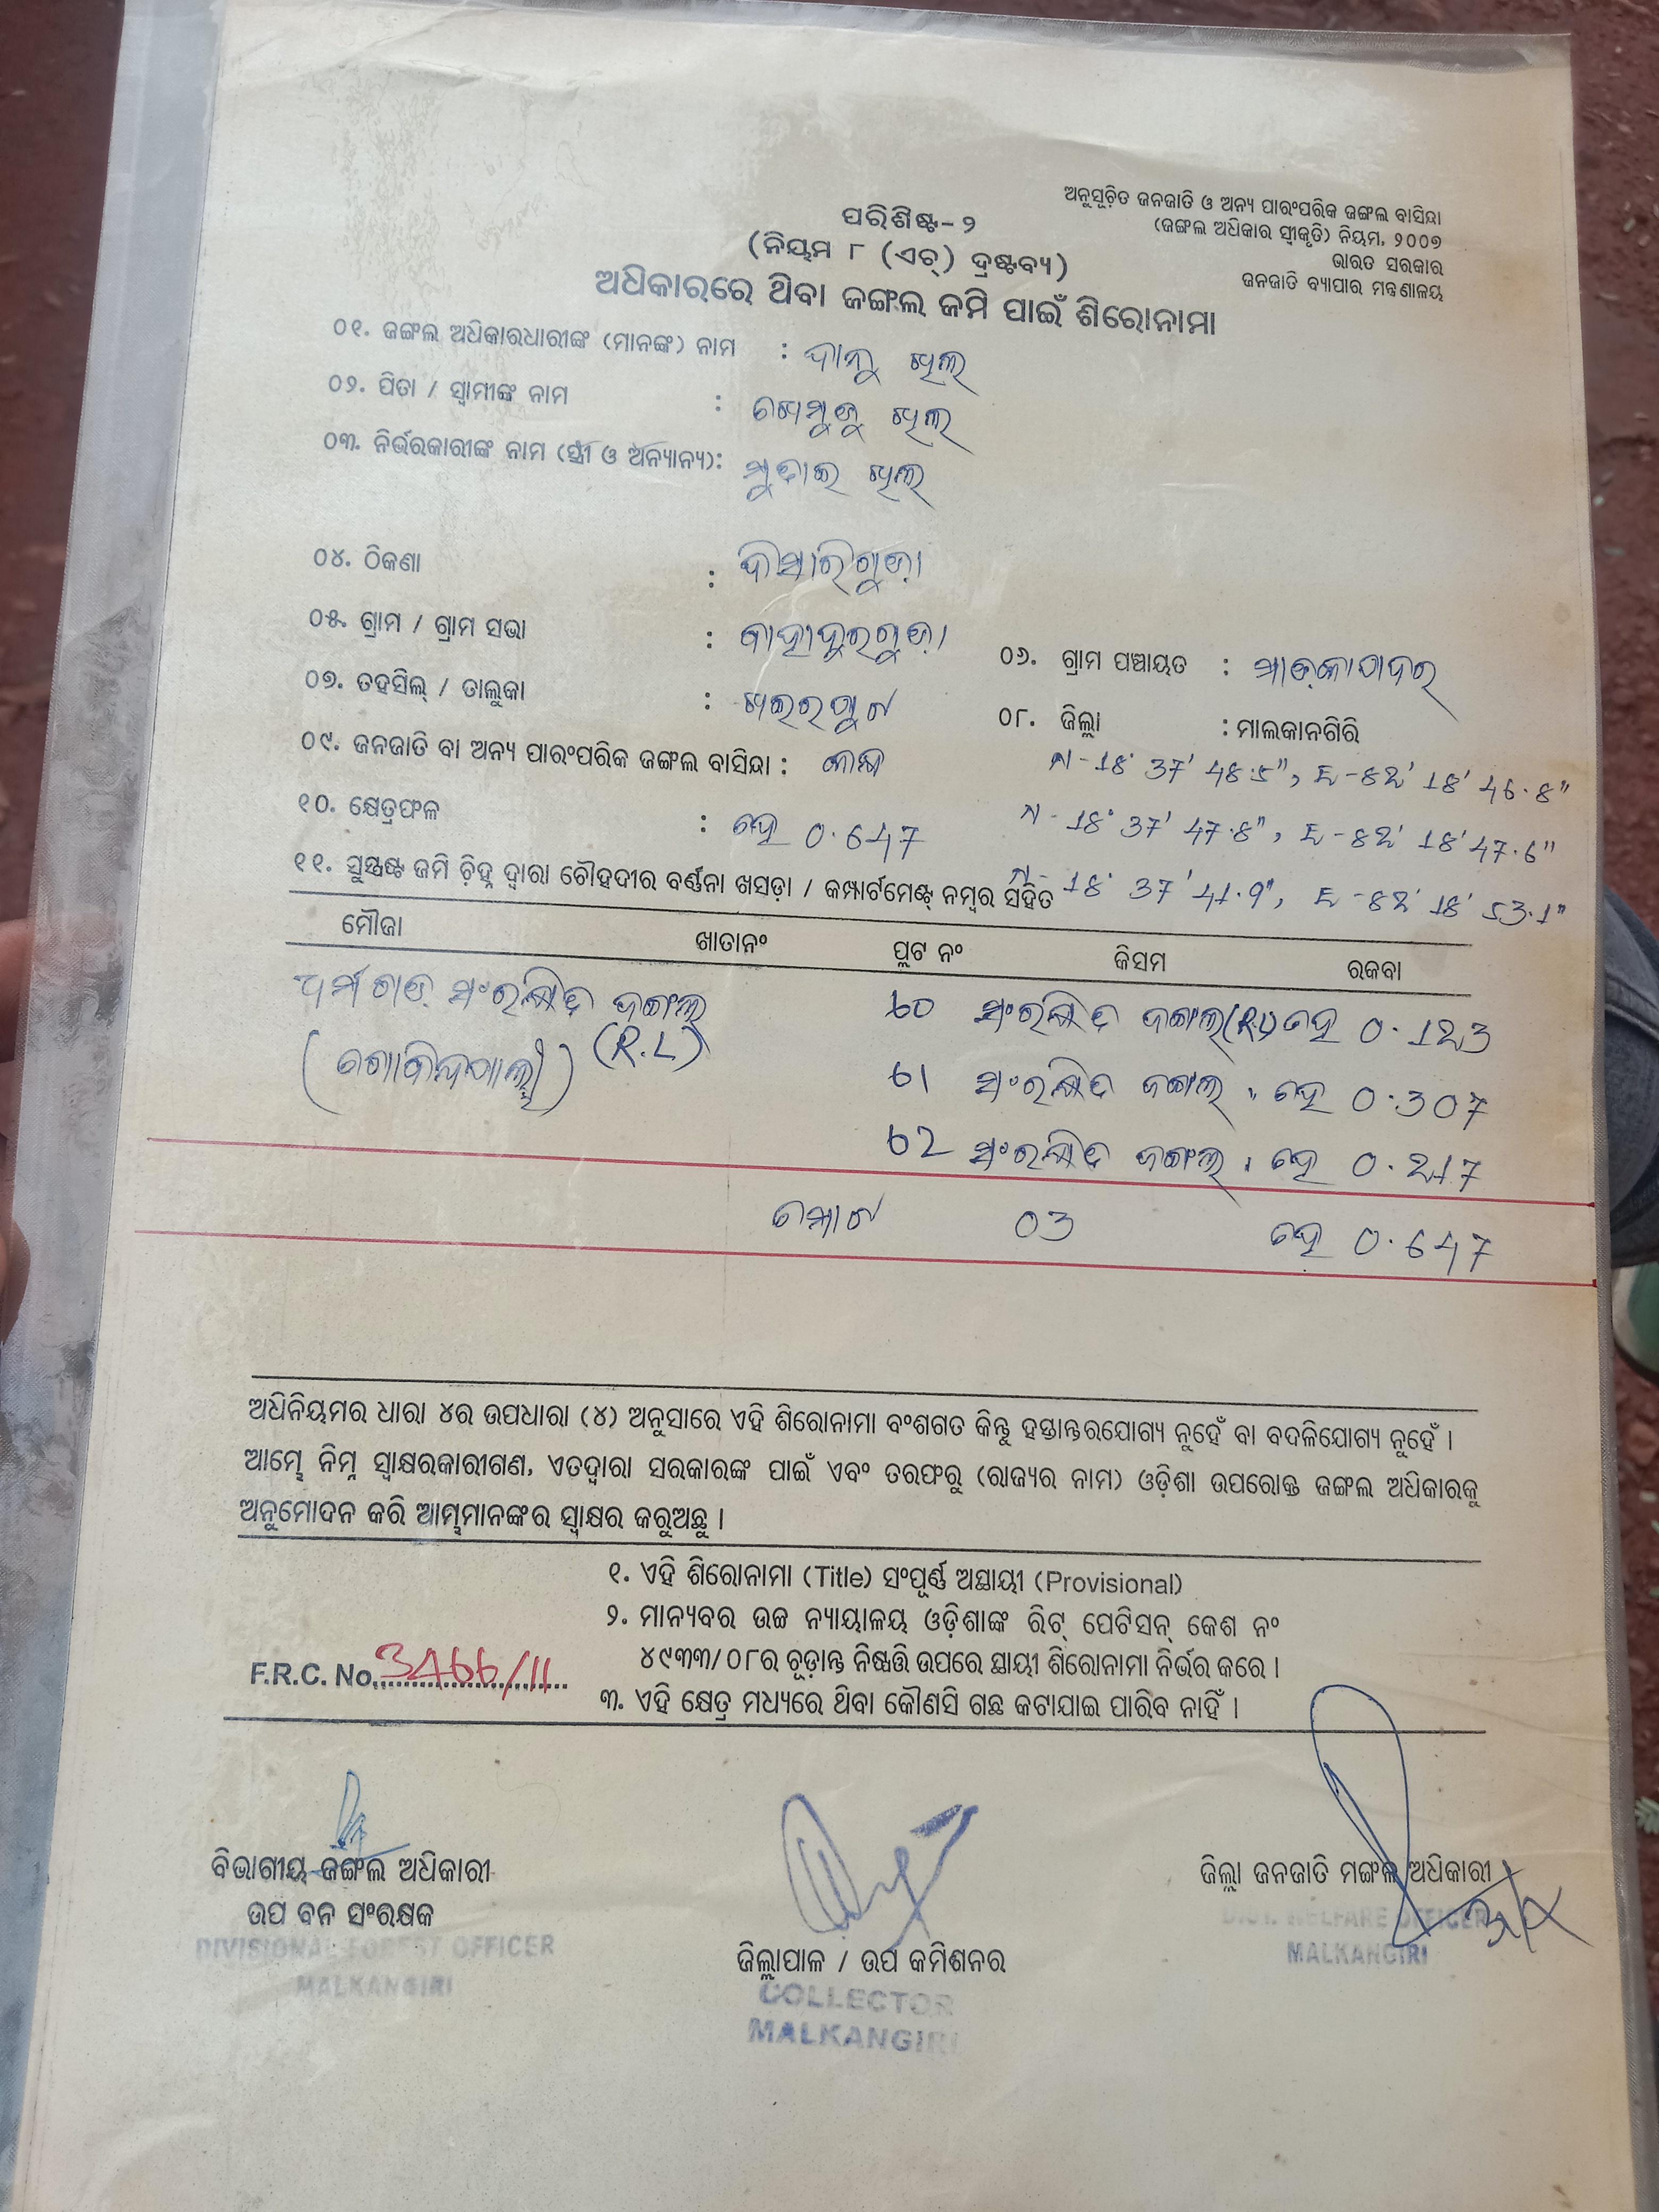 ଅନୁସୂଚିତ ଜନଜାତି ଓ ଅନ୍ୟ ପାରଂପରିକ ଜଙ୍ଗଲ ବାସିନ୍ଦା
(ଜଙ୍ଗଲ ଅଧିକାର ସ୍ୱୀକୃତି) ନିୟମ, ୨୦୦୭
ଭାରତ ସରକାର
ଜନଜାତି ବ୍ୟାପାର ମନ୍ତ୍ରଣାଳୟ
ପରିଶିଷ୍ଟ-୨
(ନିୟମ ୮ (ଏଚ୍) ଦ୍ରଷ୍ଟବ୍ୟ)
ଅଧିକାରରେ ଥିବା ଜଙ୍ଗଲ ଜମି ପାଇଁ ଶିରୋନାମା
୦୧. ଜଙ୍ଗଲ ଅଧିକାରଧାରୀଙ୍କ (ମାନଙ୍କ) ନାମ :
୦୨. ପିତା / ସ୍ୱାମୀଙ୍କ ନାମ :
୦୩. ନିର୍ଭରକାରୀଙ୍କ ନାମ (ସ୍ତ୍ରୀ ଓ ଅନ୍ୟାନ୍ୟ):
୦୪. ଠିକଣା :
୦୫. ଗ୍ରାମ / ଗ୍ରାମ ସଭା : ବାହାଦୁରଗୁଡ଼ା
୦୬. ଗ୍ରାମ ପଞ୍ଚାୟତ :
୦୭. ତହସିଲ୍ / ତାଲୁକା : ଖଇରପୁଟ
୦୮. ଜିଲ୍ଲା : ମାଲକାନଗିରି
୦୯. ଜନଜାତି ବା ଅନ୍ୟ ପାରଂପରିକ ଜଙ୍ଗଲ ବାସିନ୍ଦା :
N-18° 37' 48.5", E-82° 18' 46.8"
୧୦. କ୍ଷେତ୍ରଫଳ : ହେ 0.647
N-18° 37' 47.8", E-82° 18' 47.6"
୧୧. ସୁସ୍ପଷ୍ଟ ଜମି ଚିହ୍ନ ଦ୍ୱାରା ଚୌହଦୀର ବର୍ଣ୍ଣନା ଖସଡ଼ା / କମ୍ପାର୍ଟମେଣ୍ଟ୍ ନମ୍ବର ସହିତ
N-18° 37' 41.9", E-82° 18' 53.1"
ମୌଜା ଖାତାନଂ ପ୍ଲଟ ନଂ କିସମ ରକବା
ସଂରକ୍ଷିତ ଜଙ୍ଗଲ 60 ସଂରକ୍ଷିତ ଜଙ୍ଗଲ ହେ 0.123
(R.L)
61 ସଂରକ୍ଷିତ ଜଙ୍ଗଲ " ହେ 0.307
62 ସଂରକ୍ଷିତ ଜଙ୍ଗଲ ହେ 0.217
ମୋଟ 03 ହେ 0.647
ଅଧିନିୟମର ଧାରା ୪ର ଉପଧାରା (୪) ଅନୁସାରେ ଏହି ଶିରୋନାମା ବଂଶଗତ କିନ୍ତୁ ହସ୍ତାନ୍ତରଯୋଗ୍ୟ ନୁହେଁ ବା ବଦଳିଯୋଗ୍ୟ ନୁହେଁ ।
ଆମ୍ଭେ ନିମ୍ନ ସ୍ୱାକ୍ଷରକାରୀଗଣ, ଏତଦ୍ୱାରା ସରକାରଙ୍କ ପାଇଁ ଏବଂ ତରଫରୁ (ରାଜ୍ୟର ନାମ) ଓଡ଼ିଶା ଉପରୋକ୍ତ ଜଙ୍ଗଲ ଅଧିକାରକୁ
ଅନୁମୋଦନ କରି ଆମ୍ଭମାନଙ୍କର ସ୍ୱାକ୍ଷର କରୁଅଛୁ ।
୧. ଏହି ଶିରୋନାମା (Title) ସଂପୂର୍ଣ୍ଣ ଅସ୍ଥାୟୀ (Provisional)
୨. ମାନ୍ୟବର ଉଚ୍ଚ ନ୍ୟାୟାଳୟ ଓଡ଼ିଶାଙ୍କ ରିଟ୍ ପେଟିସନ୍ କେଶ ନଂ
୪୯୩୩/୦୮ର ଚୂଡ଼ାନ୍ତ ନିଷ୍ପତ୍ତି ଉପରେ ସ୍ଥାୟୀ ଶିରୋନାମା ନିର୍ଭର କରେ ।
F.R.C. No. 3466/11
୩. ଏହି କ୍ଷେତ୍ର ମଧ୍ୟରେ ଥିବା କୌଣସି ଗଛ କଟାଯାଇ ପାରିବ ନାହିଁ ।
ବିଭାଗୀୟ ଜଙ୍ଗଲ ଅଧିକାରୀ
ଉପ ବନ ସଂରକ୍ଷକ
DIVISIONAL FOREST OFFICER
MALKANGIRI
ଜିଲ୍ଲାପାଳ / ଉପ କମିଶନର
COLLECTOR
MALKANGIRI
ଜିଲ୍ଲା ଜନଜାତି ମଙ୍ଗଳ ଅଧିକାରୀ
DIST. WELFARE OFFICER
MALKANGIRI